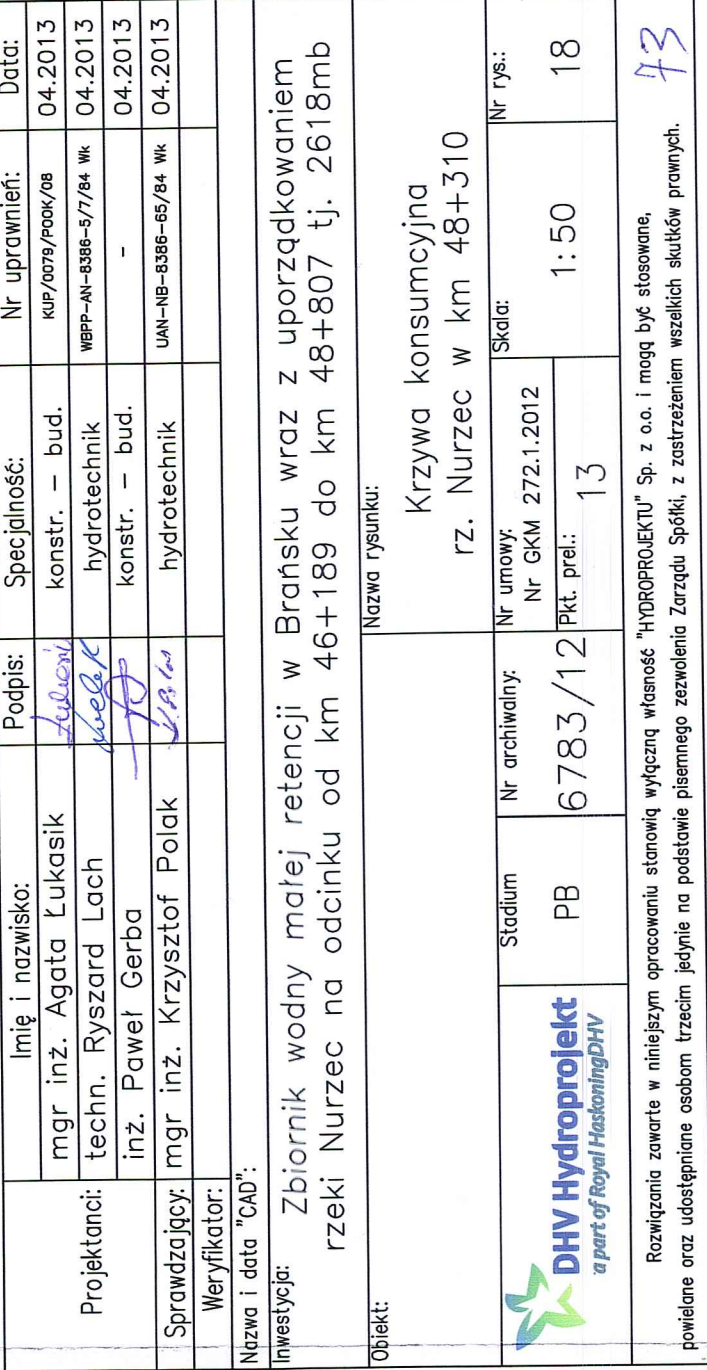 Imię i nazwisko: Podpis: Specjalność: Nr uprawnień: Data:
Projektanci: mgr inż. Agata Łukasik konstr. – bud. KUP/0079/POOK/08 04.2013
techn. Ryszard Lach hydrotechnik WBPP–AN–8386–5/7/84 Wk 04.2013
inż. Paweł Gerba konstr. – bud. – 04.2013
Sprawdzający: mgr inż. Krzysztof Polak hydrotechnik UAN–NB–8386–65/84 Wk 04.2013
Weryfikator:
Nazwa i data "CAD":
Inwestycja: Zbiornik wodny małej retencji w Brańsku wraz z uporządkowaniem
rzeki Nurzec na odcinku od km 46+189 do km 48+807 tj. 2618mb
Obiekt:
Nazwa rysunku:
Krzywa konsumcyjna
rz. Nurzec w km 48+310
DHV Hydroprojekt
a part of Royal HaskoningDHV
Stadium
PB
Nr archiwalny:
6783/12
Nr umowy:
Nr GKM 272.1.2012
Pkt. prel.:
13
Skala:
1:50
Nr rys.:
18
Rozwiązania zawarte w niniejszym opracowaniu stanowią wyłączną własność "HYDROPROJEKTU" Sp. z o.o. i mogą być stosowane,
powielane oraz udostępniane osobom trzecim jedynie na podstawie pisemnego zezwolenia Zarządu Spółki, z zastrzeżeniem wszelkich skutków prawnych.
73